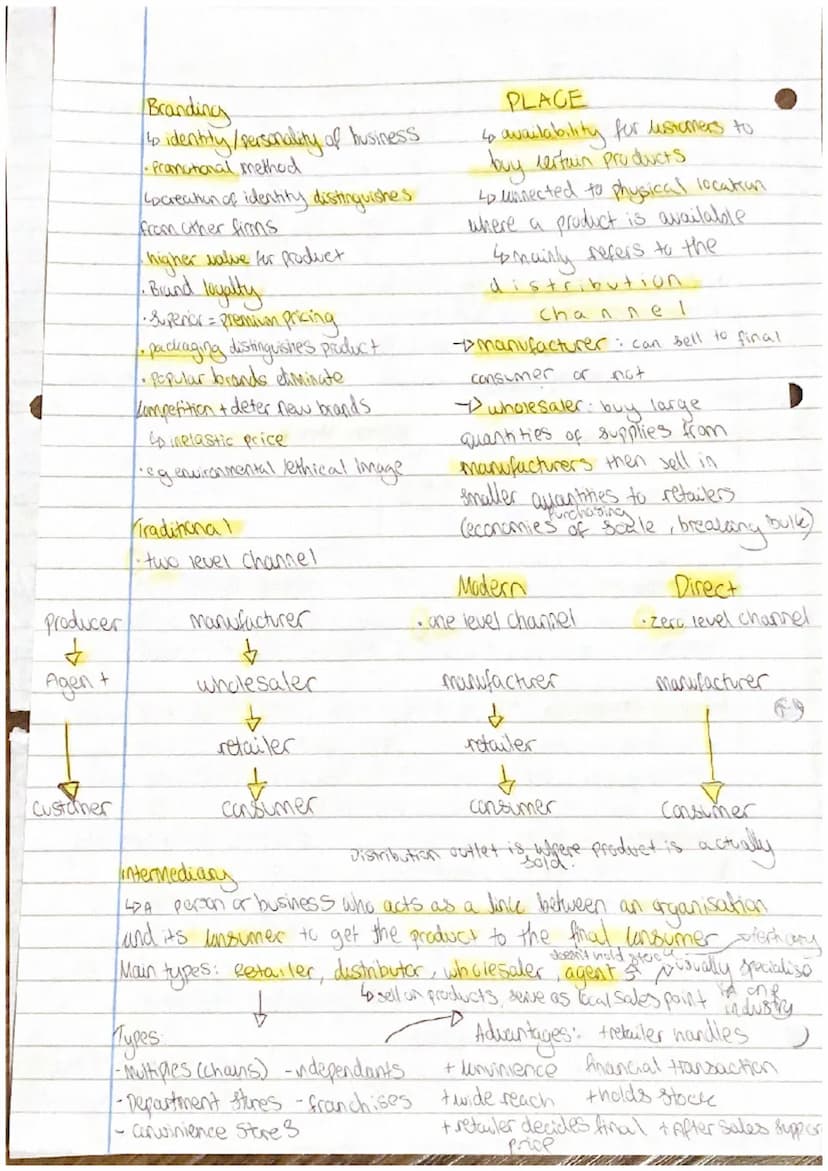 Branding
↳ identity/personality of business
· Promotional method
↳ creation of identity distinguishes
from other firms
· higher value for product
· Brand loyalty
· Superior = premium pricing
· packaging distinguishes product
· Popular brands eliminate
competition + deter new brands
↳ inelastic price
· eg environmental / ethical image
PLACE
↳ availability for customers to
buy certain products
↳ connected to physical location
where a product is available
↳ mainly refers to the
distribution
channel
→ manufacturer : can sell to final
consumer or not
→ wholesaler : buy large
quantities of supplies from
manufacturers then sell in
smaller quantities to retailers
purchasing
(economies of scale, breaking bulk)
Traditional
· two level channel
Modern
· one level channel
Direct
· zero level channel
producer
↓
Agent
↓
customer
manufacturer
↓
wholesaler
↓
retailer
↓
consumer
manufacturer
↓
retailer
↓
consumer
manufacturer
↓
consumer
Distribution outlet is where product is actually
sold.
Intermediary
↳ A person or business who acts as a link between an organisation
and its consumer to get the product to the final consumer
doesn't hold stock
Main types: Retailer, distributor, wholesaler, agent
usually specialise
in one
industry
↳ sell on products, serve as local sales point
↓
Types
- Multiples (chains) - independants
- Department stores - franchises
- convinience stores
Advantages: + retailer handles
financial transaction
+ convinience
+ wide reach + holds stock
+ retailer decides final + After sales support
price